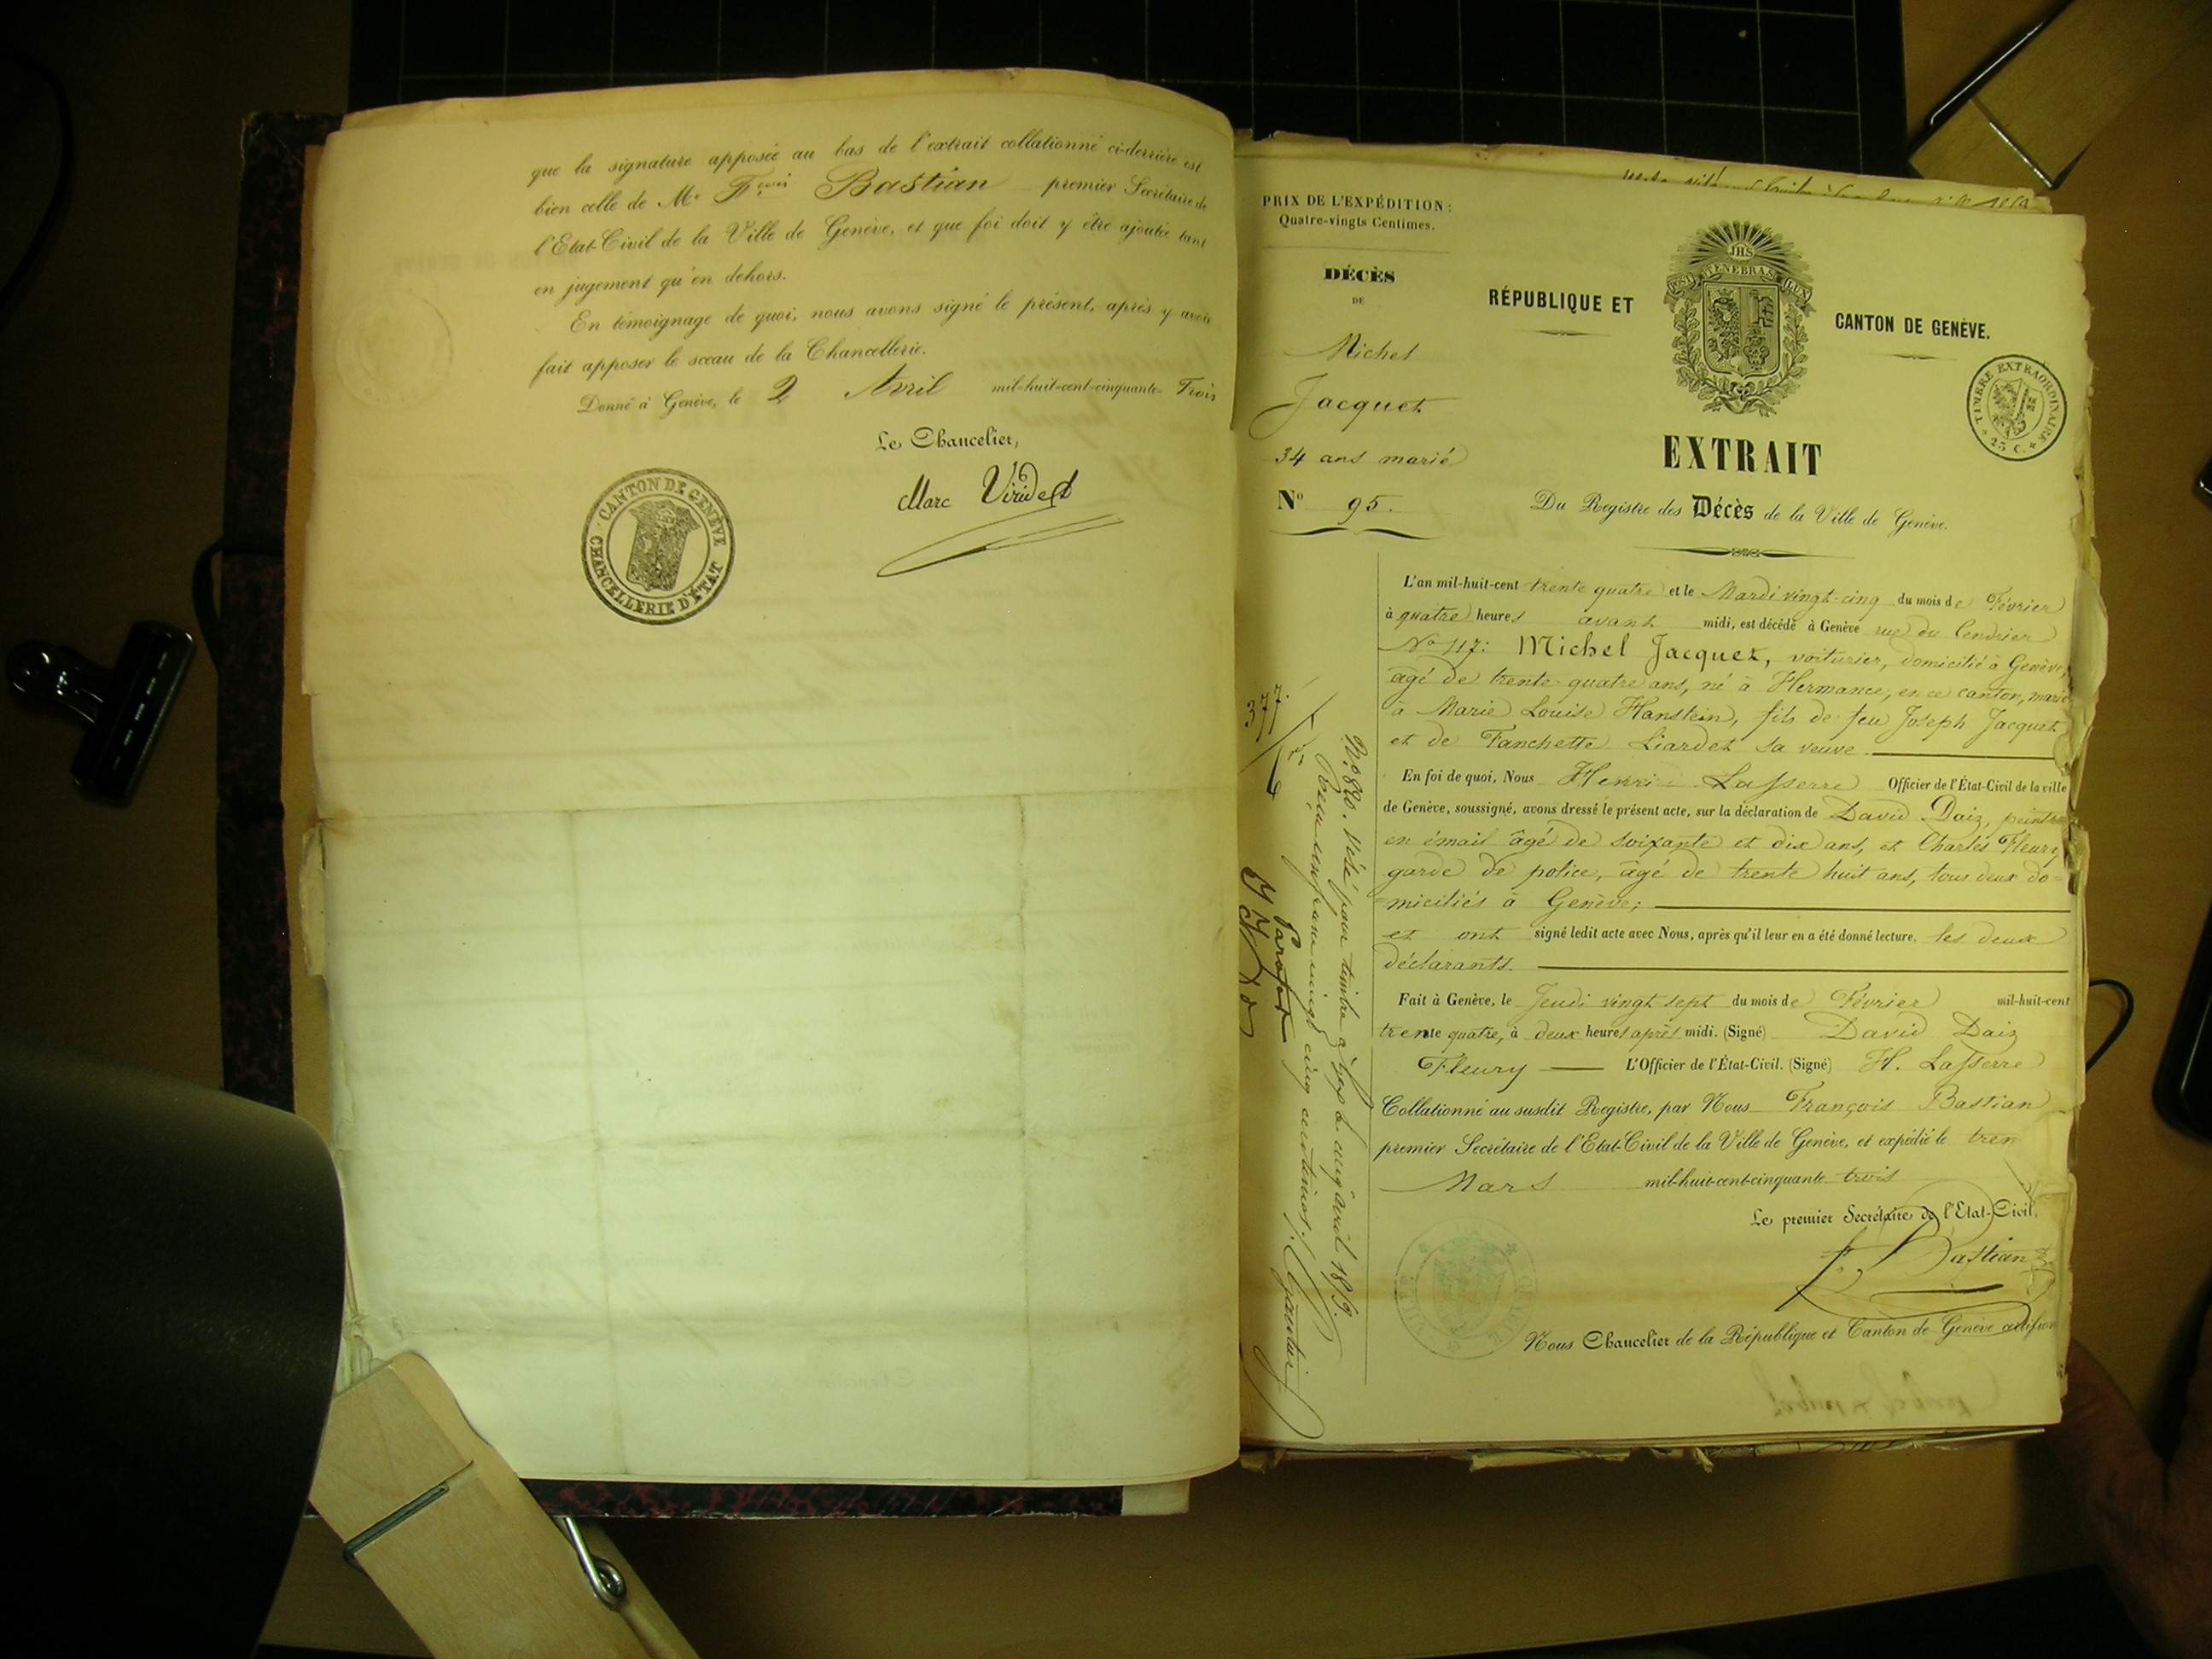 que la signature apposée au bas de l'extrait collationné ci-derrière est
bien celle de Mr Fcois Bastian premier Secrétaire de
l'Etat-Civil de la Ville de Genève, et que foi doit y être ajoutée tant
en jugement qu'en dehors.
En témoignage de quoi, nous avons signé le présent, après y avoir
fait apposer le sceau de la Chancellerie.
Donné à Genève, le 2 Avril mil-huit-cent-cinquante- Trois
Le Chancelier,
Marc Viridet
CANTON DE GENÈVE
CHANCELLERIE D'ÉTAT
PRIX DE L'EXPÉDITION:
Quatre-vingts Centimes.
DÉCÈS
DE
Michel
Jacquet
34 ans marié
No 95.
JHS
POST TENEBRAS LUX
RÉPUBLIQUE ET CANTON DE GENÈVE.
TIMBRE EXTRAORDINAIRE
25 C.
EXTRAIT
Du Registre des Décès de la Ville de Genève.
L'an mil-huit-cent trente quatre et le Mardi vingt-cinq du mois de Février
à quatre heures avant midi, est décédé à Genève rue du Cendrier
No 117: Michel Jacquet, voiturier, domicilié à Genève,
âgé de trente-quatre ans, né à Hermance, en ce canton, marié
à Marie Louise Hanstein, fils de feu Joseph Jacquet
et de Fanchette Liardet sa veuve.
En foi de quoi, Nous Henri Lasserre Officier de l'État-Civil de la ville
de Genève, soussigné, avons dressé le présent acte, sur la déclaration de David Daiz, peintre
en émail âgé de soixante et dix ans, et Charles Fleury,
garde de police, âgé de trente huit ans, tous deux do-
miciliés à Genève;
et ont signé ledit acte avec Nous, après qu'il leur en a été donné lecture. les deux
déclarants.
Fait à Genève, le Jeudi vingt-sept du mois de Février mil-huit-cent
trente quatre, à deux heures après midi. (Signé) David Daiz
Fleury L'Officier de l'État-Civil. (Signé) H. Lasserre
Collationné au susdit Registre, par Nous François Bastian
premier Secrétaire de l'Etat-Civil de la Ville de Genève, et expédié le tren
Mars mil-huit-cent-cinquante trois
Le premier Secrétaire de l'Etat-Civil,
F. Bastian
Nous Chancelier de la République et Canton de Genève certifions
377.
Visé pour timbre à Gex le cinq avril 1853.
Reçu vingt cinq centimes.